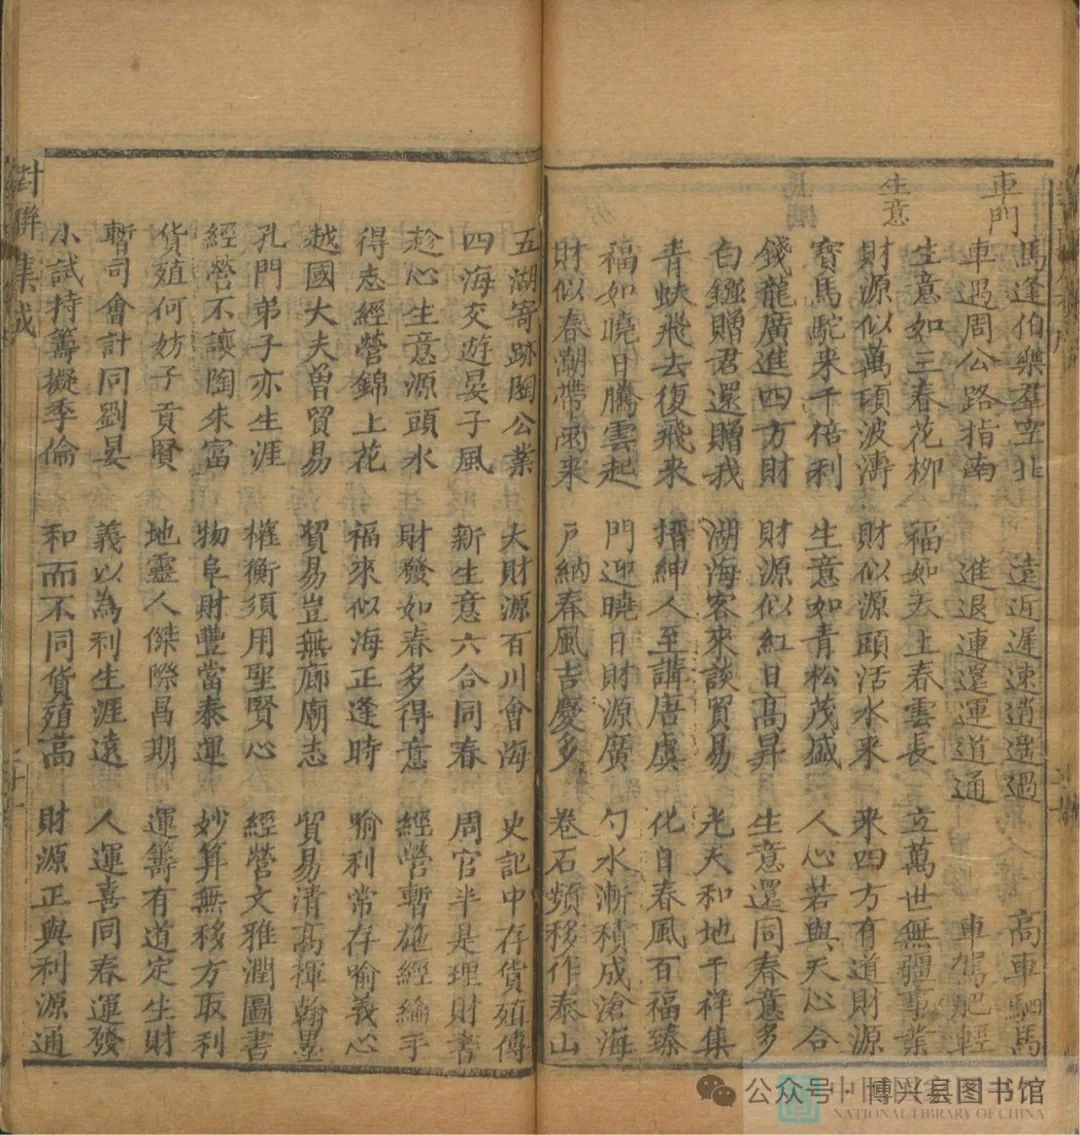 車門
馬逢伯樂羣空北 遠近遲速逍遥過 高車駟馬
車過周公路指南 進退連還運道通 車駕肥輕
生意
生意如三春花柳 福如天上春雲長 立萬世無疆事業
財源似萬頃波濤 財似源頭活水来 来四方有道財源
寶馬駝来千倍利 生意如青松茂盛 人心若與天心合
錢龍廣進四方財 財源似紅日髙昇 生意還同春意多
白鏹贈君還贈我 湖海客來談貿易 光天和地千祥集
青蚨飛去復飛来 搢紳人至講唐虞 化日春風百福臻
福如曉日騰雲起 門迎曉日財源廣 勺水漸積成滄海
財似春潮帶雨来 戶納春風吉慶多 卷石頻移作泰山
五湖寄跡陶公業 大財源百川會海 史記中存貨殖傳
四海交遊晏子風 新生意六合同春 周官半是理財書
趁心生意源頭水 財發如春多得意 經營暫施經綸手
得志經營錦上花 福來似海正逢時 喻利常存喻義心
越國大夫曽貿易 貿易豈無廊廟志 貿易清髙揮翰墨
孔門弟子亦生涯 權衡須用聖賢心 經營文雅潤圖書
經營不讓陶朱富 物阜財豐當泰運 妙算無移方取利
貨殖何妨子貢賢 地靈人傑際昌期 運籌有道定生財
暫司會計同劉晏 義以為利生涯遠 人運喜同春運發
小試持籌擬季倫 和而不同貨殖髙 財源正與利源通
對聯集成
公众号·博兴县图书馆
NATIONAL LIBRARY OF CHINA